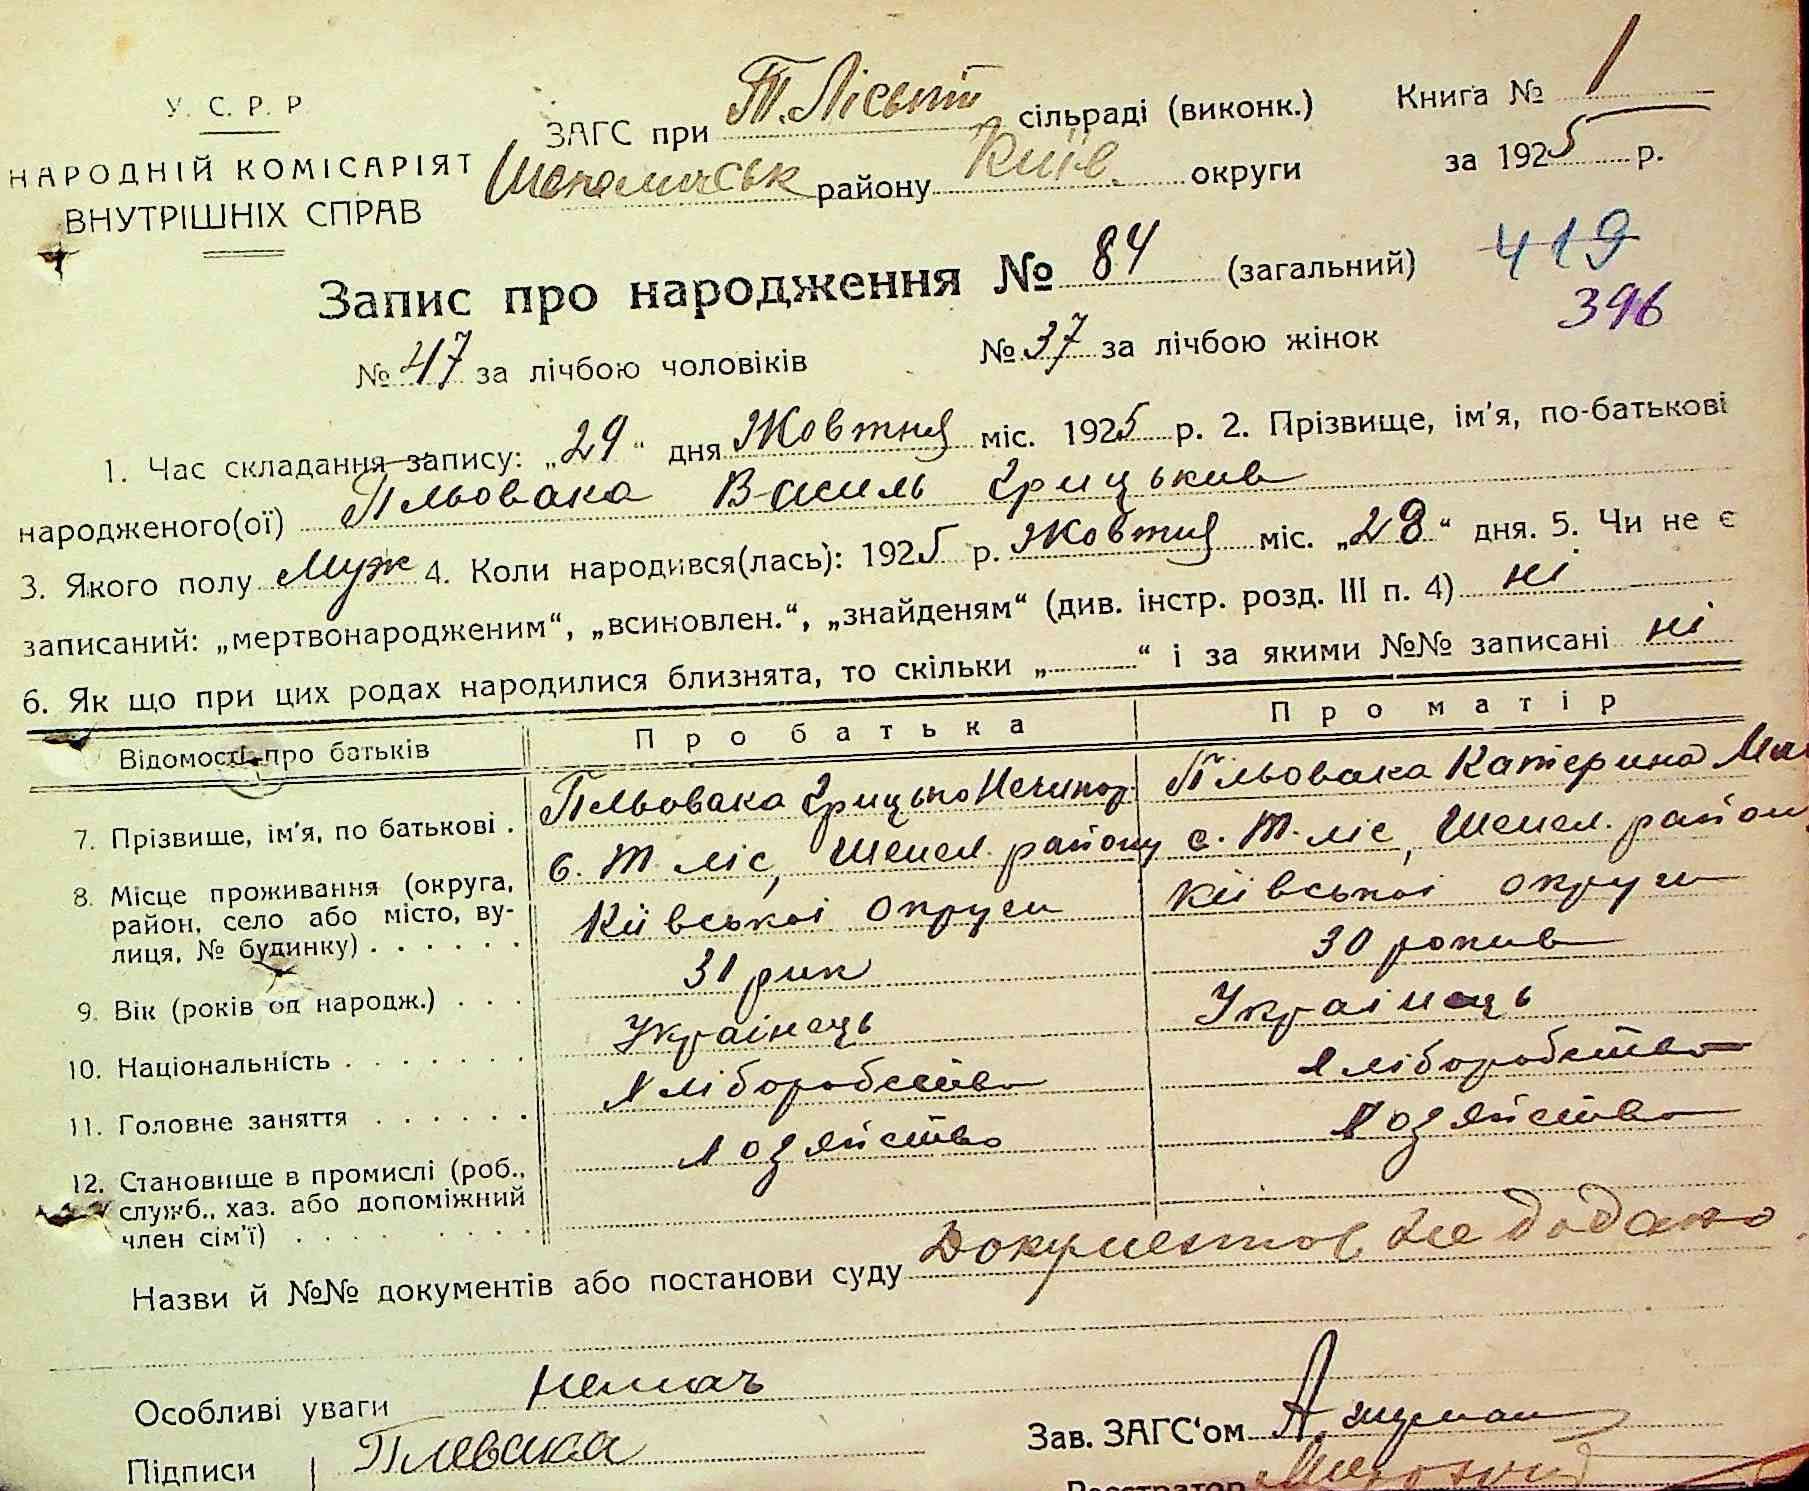 У. С. Р. Р.
НАРОДНІЙ КОМІСАРІЯТ
ВНУТРІШНІХ СПРАВ
ЗАГС при Т. Лісьтт сільраді (виконк.)
району Київ. округи
Книга № 1
за 1925 р.
Запис про народження № 84 (загальний)
419
396
№ 47 за лічбою чоловіків № 37 за лічбою жінок
1. Час складання запису: „29“ дня Жовтня міс. 1925 р. 2. Прізвище, ім'я, по-батькові
народженого(ої) Пльовака Василь Грицькив
3. Якого полу Муж 4. Коли народився(лась): 1925 р. Жовтня міс. „28“ дня. 5. Чи не є
записаний: „мертвонародженим“, „всиновлен.“, „знайденям“ (див. інстр. розд. III п. 4) ні
6. Як що при цих родах народилися близнята, то скільки „ “ і за якими №№ записані ні
Відомості про батьків Про батька Про матір
7. Прізвище, ім'я, по батькові . Пльовака Грицько Нечипор. Пльовака Катерина
8. Місце проживання (округа, район, село або місто, вулиця, № будинку) . . . . . .
с. Т. ліс, Шепел. району с. Т. ліс, Шепел. району
Київськоі округи Київськоі округи
9. Вік (років од народж.) . . . 31 рик 30 рокив
10. Національність . . . . . . . Украінець Украінець
11. Головне заняття . . . . . . Хліборобство Хліборобство
12. Становище в промислі (роб., служб., хаз. або допоміжний член сім'ї) . . . . . . . . .
Хозяйство Хозяйство
Назви й №№ документів або постанови суду Документов не додано
Особливі уваги немаъ
Підписи Плевака
Зав. ЗАГС'ом
Реєстратор